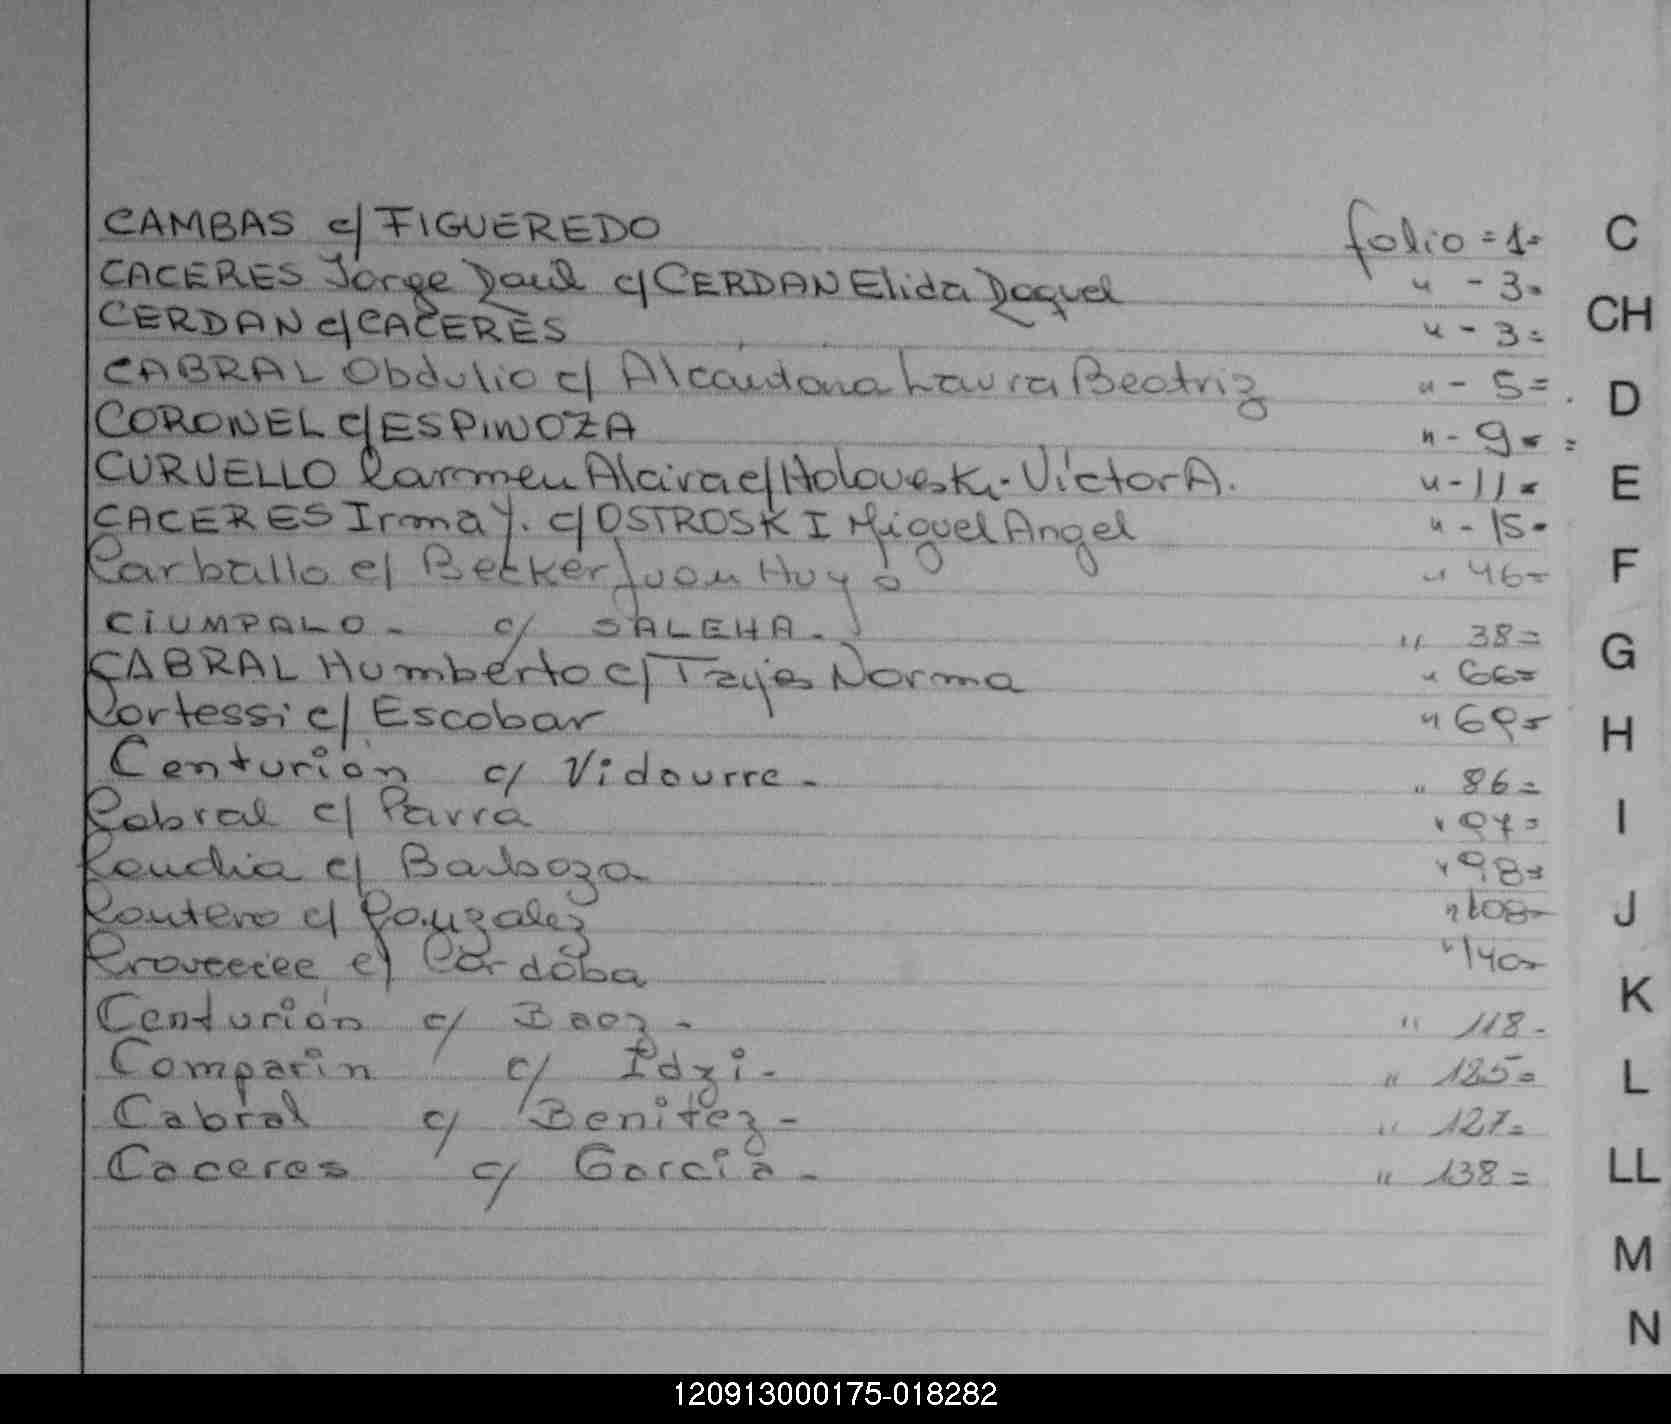 CAMBAS c/ FIGUEREDO folio = 1=
CACERES Jorge Raul c/ CERDAN Elida Raquel " - 3=
CERDAN c/ CACERES " - 3=
CABRAL Obdulio c/ Alcantara Laura Beatriz " - 5=
CORONEL c/ ESPINOZA " - 9=
CURVELLO Carmen Alcira c/ Holoveski - Victor A. " - 11=
CACERES Irma Y. c/ OSTROSKI Miguel Angel " - 15=
Carballo c/ Becker Juan Hugo " 46=
CIUMPALO - c/ SALEHA - " 38=
CABRAL Humberto c/ Norma " 66=
Cortessi c/ Escobar " 69=
Centurion c/ Vidourre - " 86=
Cabral c/ Parra " 97=
c/ Barboza " 98=
c/ Gonzalez " 108=
c/ Cordoba " 140=
Centurión c/ Baez - " 118-
Comparin c/ Idzi - " 125=
Cabral c/ Benitez - " 127=
Caceres c/ Garcia - " 138=
C
CH
D
E
F
G
H
I
J
K
L
LL
M
N
120913000175-018282